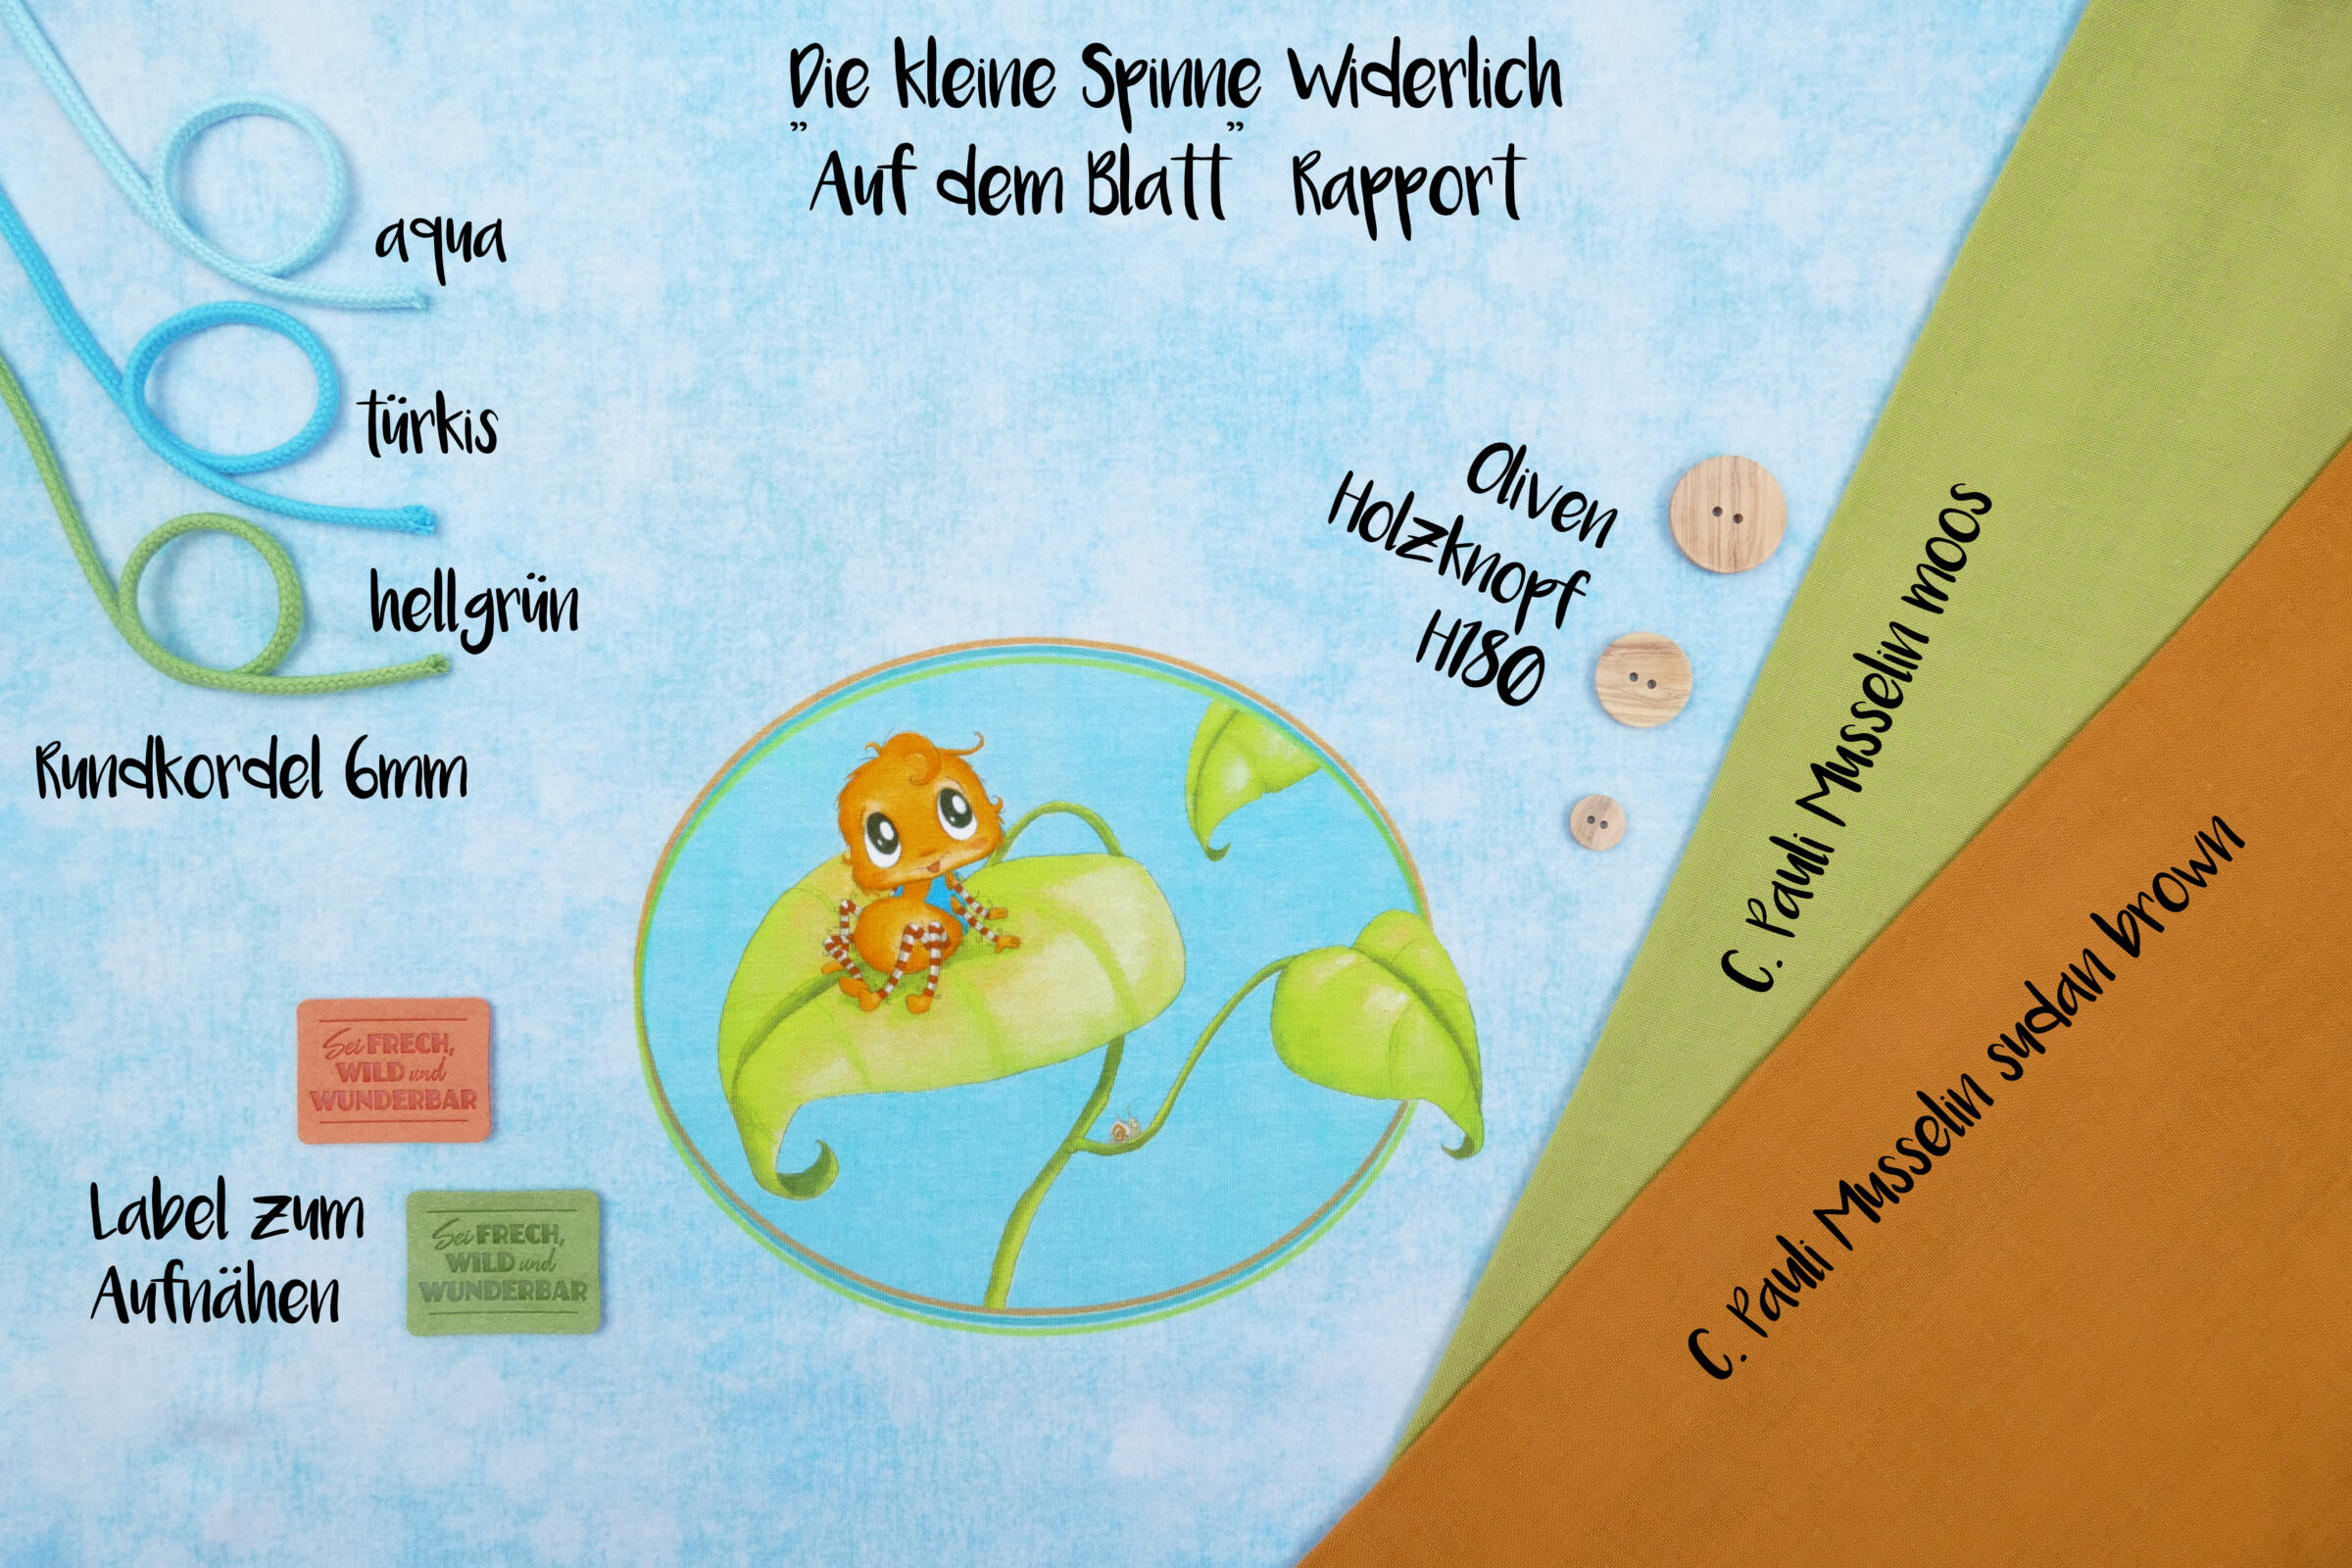 Die kleine Spinne Widerlich
"Auf dem Blatt" Rapport
aqua
türkis
hellgrün
Rundkordel 6mm
Oliven
Holzknopf
H180
C. Pauli Musselin moos
C. Pauli Musselin sudan brown
Sei FRECH,
WILD und
WUNDERBAR
Label zum
Aufnähen
Sei FRECH,
WILD und
WUNDERBAR